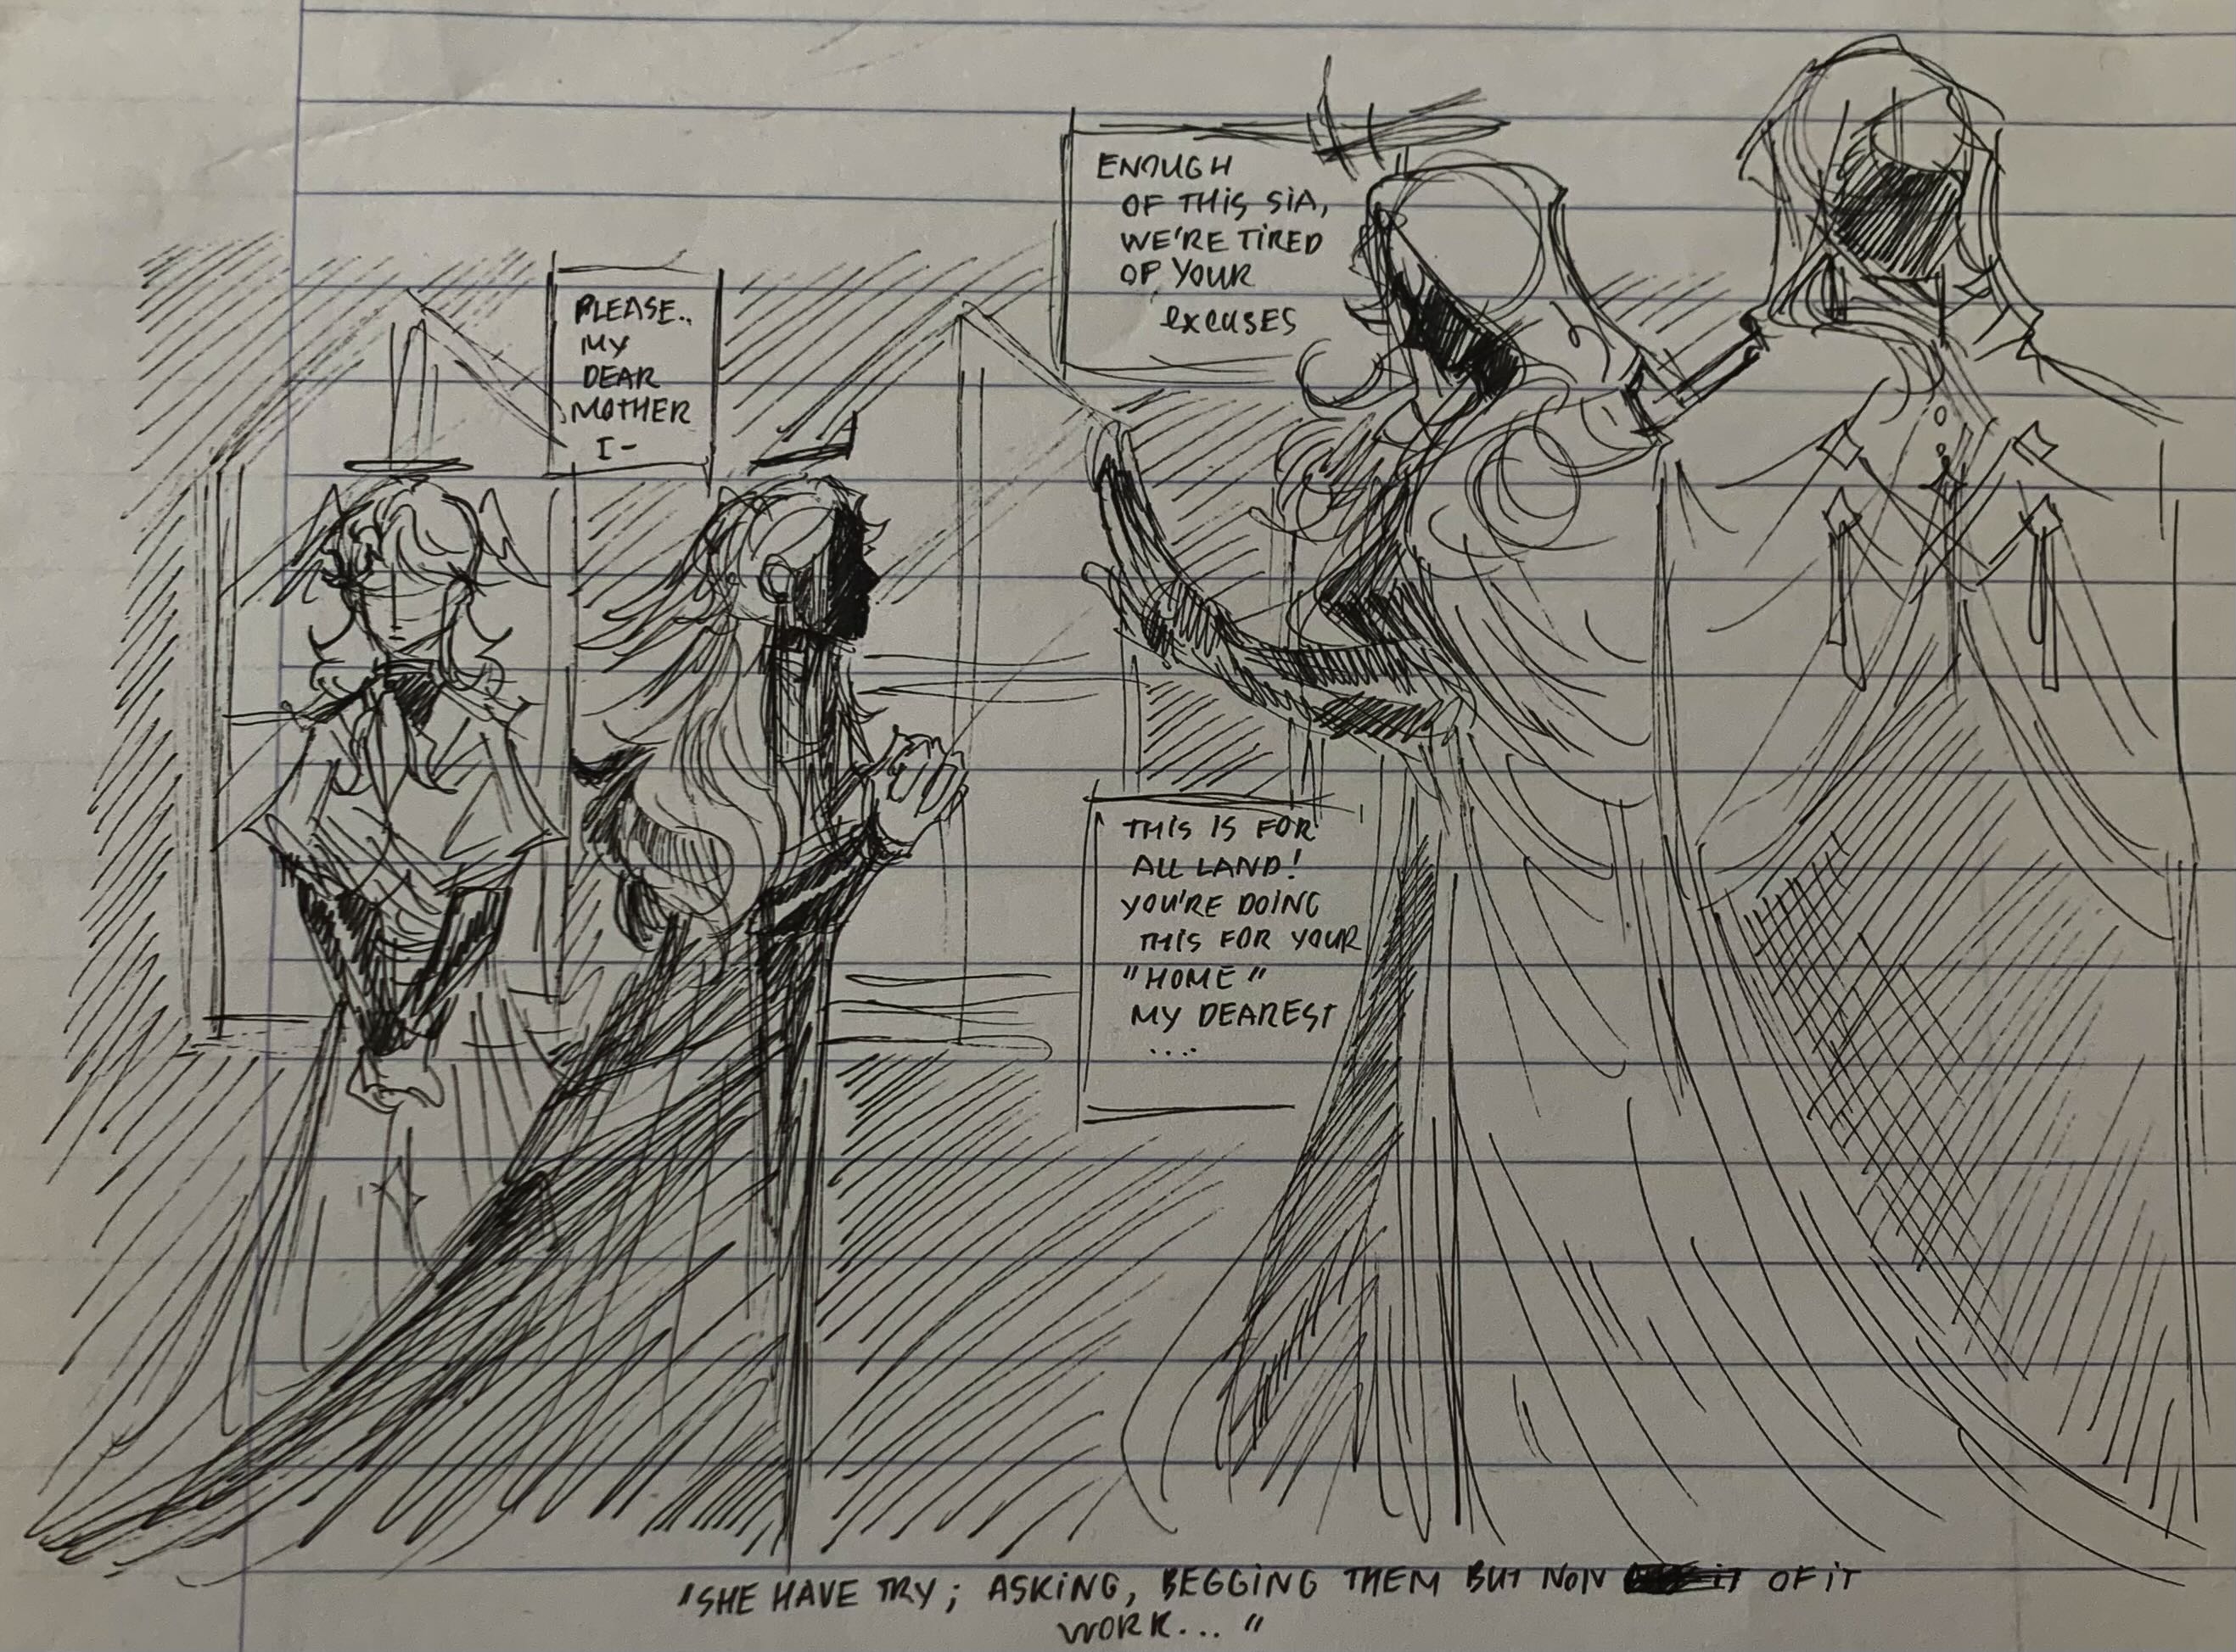 PLEASE..
MY
DEAR
MOTHER
I-
ENOUGH
OF THIS SIA,
WE'RE TIRED
OF YOUR
EXCUSES
THIS IS FOR
ALL LAND!
YOU'RE DOING
THIS FOR YOUR
"HOME"
MY DEAREST
....
"SHE HAVE TRY; ASKING, BEGGING THEM BUT NON OF IT
WORK... "